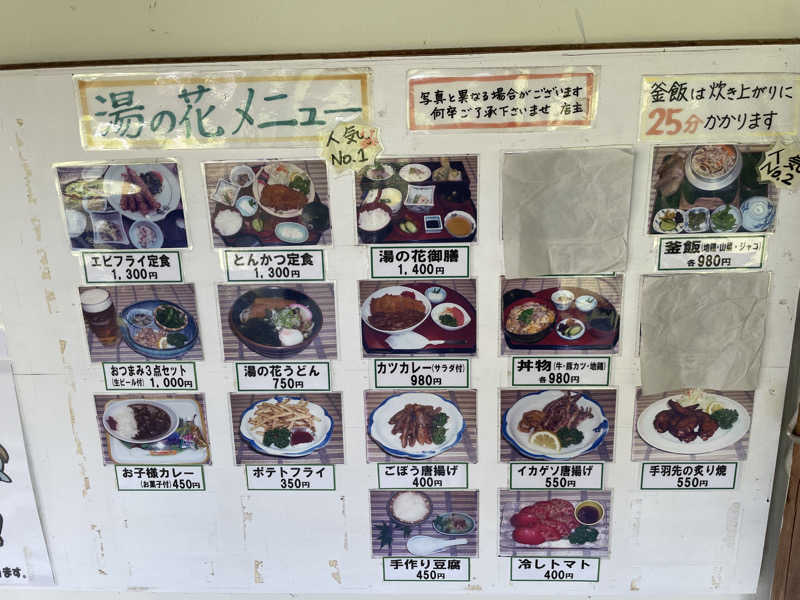 湯の花メニュー
人気
No.1
写真と異なる場合がございます
何卒ご了承下さいませ 店主
釜飯は炊き上がりに
25分かかります
人気
No.2
エビフライ定食
1,300円
とんかつ定食
1,300円
湯の花御膳
1,400円
釜飯(地鶏・山菜・ジャコ)
各980円
おつまみ3点セット
(生ビール付)1,000円
湯の花うどん
750円
カツカレー(サラダ付)
980円
丼物(牛・豚カツ・地鶏)
各980円
お子様カレー
(お菓子付)450円
ポテトフライ
350円
ごぼう唐揚げ
400円
イカゲソ唐揚げ
550円
手羽先の炙り焼
550円
手作り豆腐
450円
冷しトマト
400円
ます。